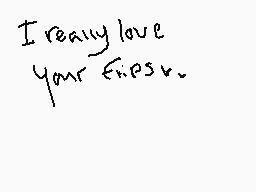 I really love
your Flips v.v